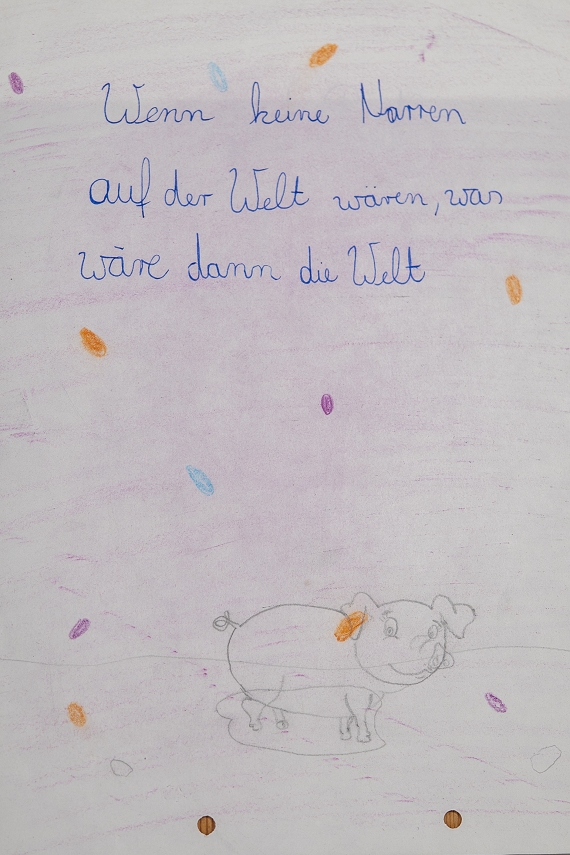 Wenn keine Narren
auf der Welt wären, was
wäre dann die Welt